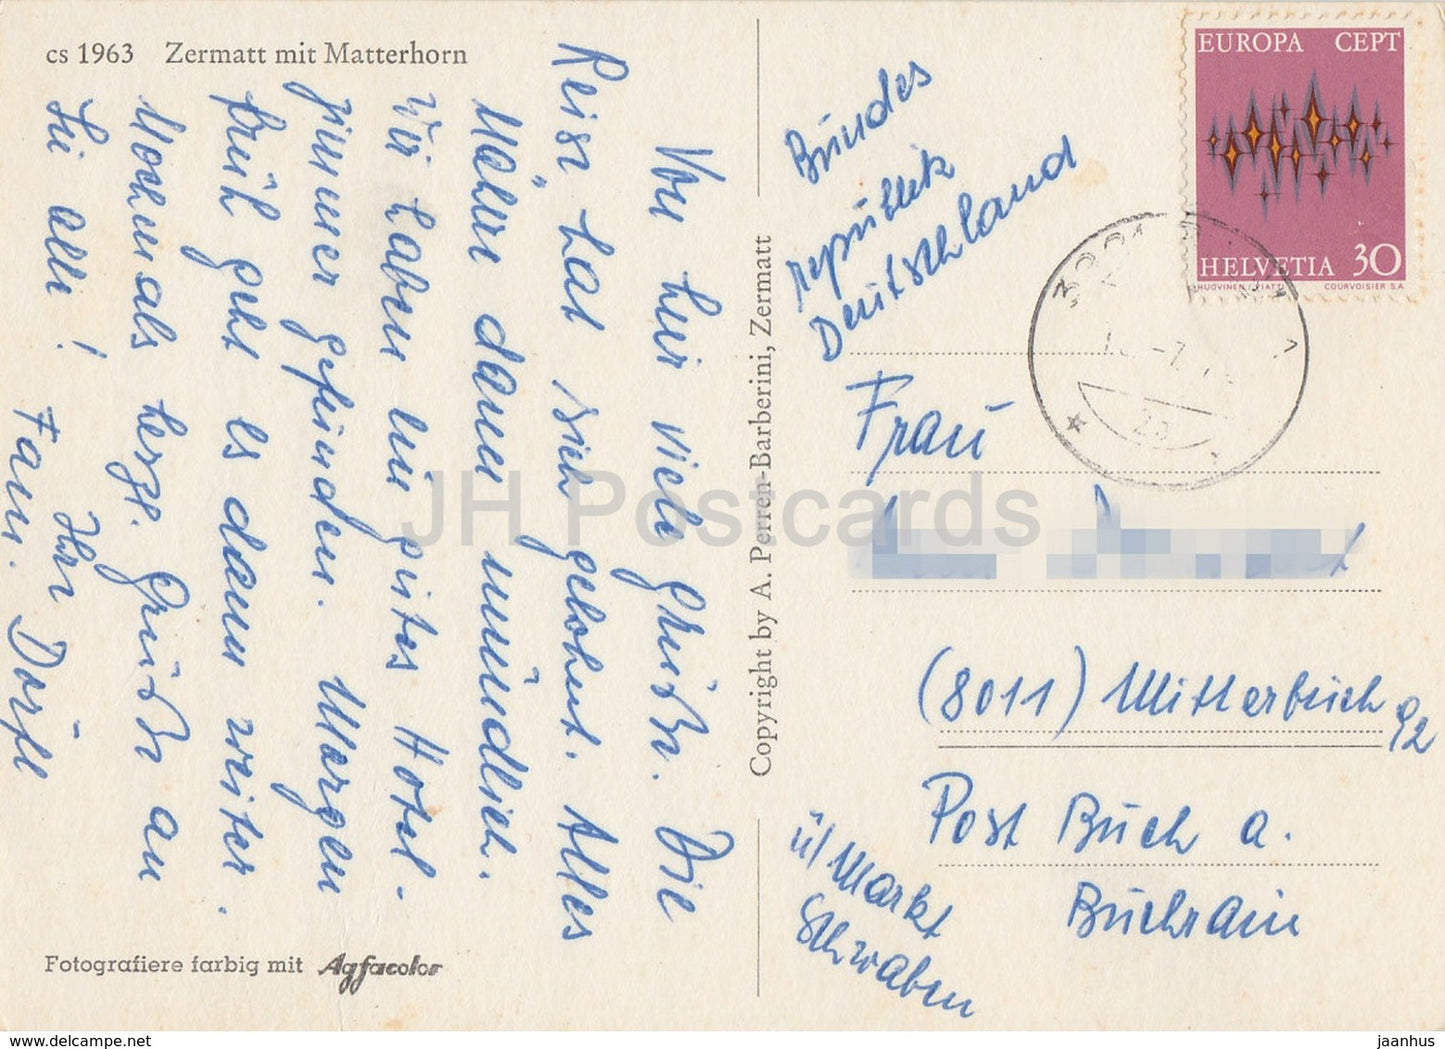 cs 1963 Zermatt mit Matterhorn
Von hier viele Grüße. Die
Reise hat sich gelohnt. Alles
Nähere dann mündlich.
Wir haben ein gutes Hotel-
zimmer gefunden. Morgen
früh geht es dann weiter.
Nochmals herzl. Grüße an
Sie alle! Ihre
Fam. Dörfl
Fotografiere farbig mit Agfacolor
Copyright by A. Perren-Barberini, Zermatt
EUROPA CEPT
HELVETIA 30
HUOVINEN (PIATTI) COURVOISIER S.A.
Bundes
republik
Deutschland
Frau
(8011) Mitterbuch 92
Post Buch a.
Buchrain
ü/ Markt
Schwaben
JH Postcards
Delcampe.net
jaanhus